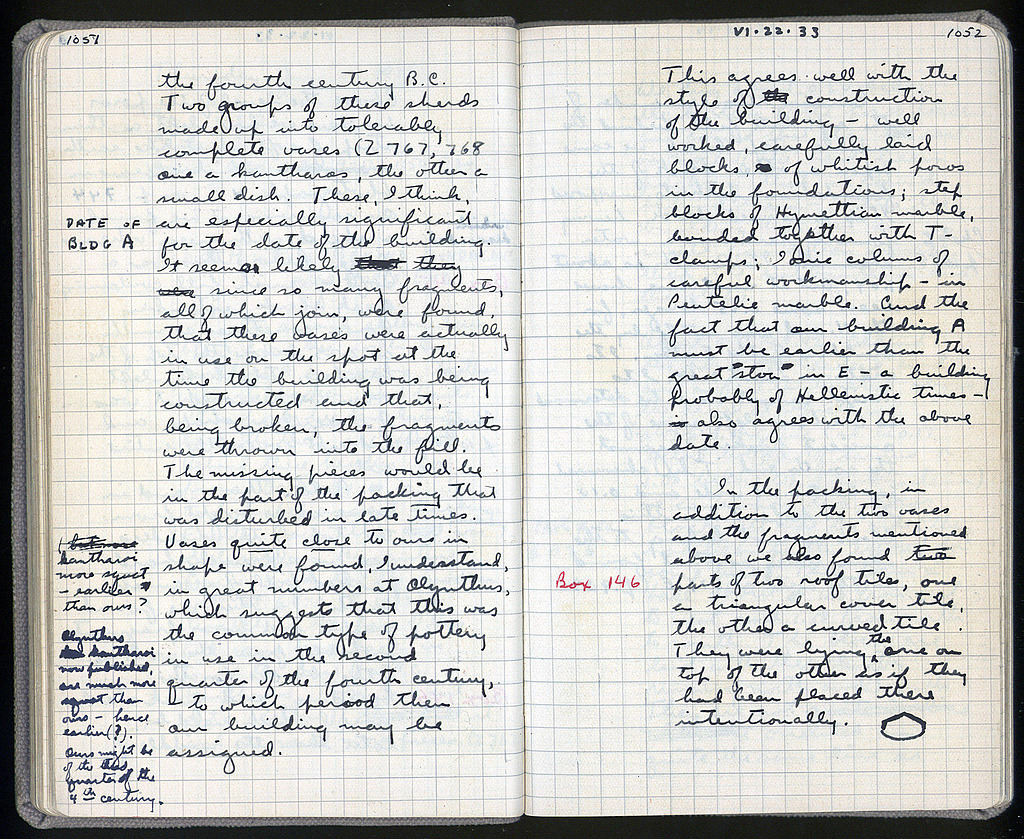 1051
the fourth century B.C.
Two groups of these sherds
made up into tolerably
complete vases (Z 767, 768
one a kantharos, the other a
small dish. These, I think,
DATE OF
BLDG A
are especially significant
for the date of the building.
It seems likely that they
since so many fragments,
all of which join, were found,
that these vases were actually
in use on the spot at the
time the building was being
constructed and that,
being broken, the fragments
were thrown into the fill.
The missing pieces would be
in the part of the packing that
was disturbed in late times.
Vases quite close to ours in
shape were found, I understand,
in great numbers at Olynthus,
which suggests that this was
the common type of pottery
in use in the second
quarter of the fourth century,
– to which period then
our building may be
assigned.
kantharoi
more squat
– earlier
than ours?
Olynthus
kantharoi
now published,
are much more
squat than
ours – hence
earlier(?).
Ours might be
of the third
quarter of the
4th century.
VI·22·33
1052
This agrees well with the
style of the construction
of the building – well
worked, carefully laid
blocks, of whitish poros
in the foundations; step
blocks of Hymettian marble,
bonded together with T-
clamps; Ionic columns of
careful workmanship – in
Pentelic marble. And the
fact that our building A
must be earlier than the
great "stoa" in E – a building
probably of Hellenistic times –
also agrees with the above
date.
In the packing, in
addition to the two vases
and the fragments mentioned
above we also found two
Box 146
parts of two roof tiles, one
a triangular cover tile,
the other a curved tile.
They were lying, the one on
top of the other as if they
had been placed there
intentionally.